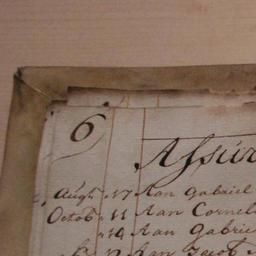 6
Assur
Augt 17 Aan Gabriel
Octob 11 Aan Cornel
14 Aan Gabrie
12 Aan Jacob